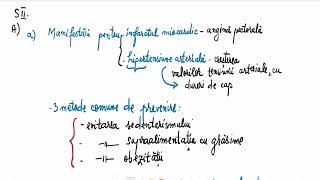 SII.
A)
a) Manifestări pentru infarctul miocardic - angină pectorală
hipertensiune arterială - creșterea
valorilor tensiunii arteriale, cu
dureri de cap
- 3 metode comune de prevenire:
- evitarea sedentarismului
- -||- supraalimentația cu grăsime
- -||- obezității